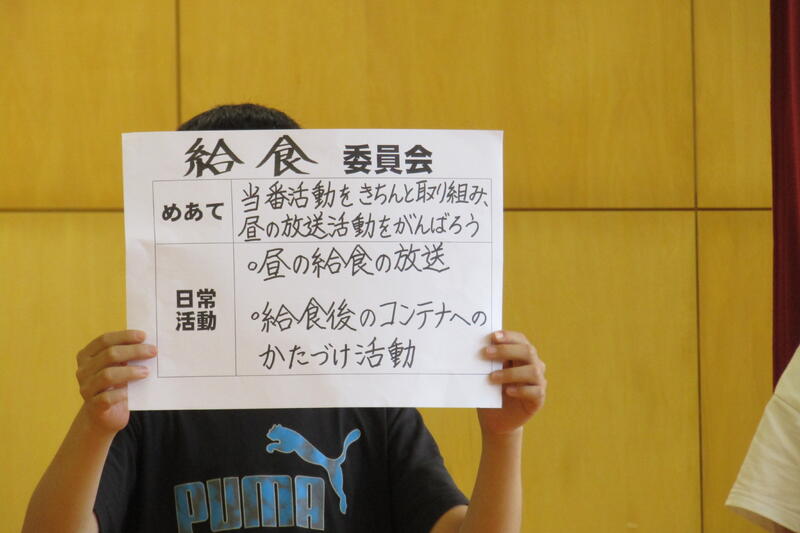 給食 委員会
めあて
当番活動をきちんと取り組み、
昼の放送活動をがんばろう
日常
活動
。昼の給食の放送
。給食後のコンテナへの
かたづけ活動
PUMA